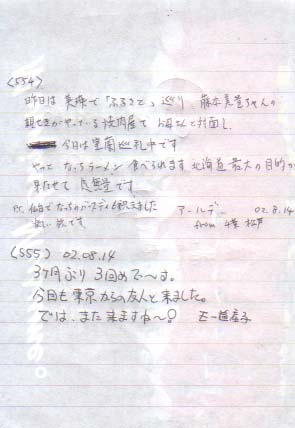 〈554〉
昨日は美瑛で「ふるさと」巡り、藤本美貴ちゃんの
親せきがやっている焼肉屋でお母さんと対面し、
今日は室蘭巡礼中です
やっとなっちラーメン食べられます 北海道最大の目的が
果たせて感無量です
P.S. 仙台でなっちのバースディも祝えました
楽しい旅です
アールデー 02.8.14
from 千葉 松戸
〈555〉 02.08.14
3ヶ月ぶり3回めで〜す。
今回も東京からの友人と来ました。
では、また来ますね〜!